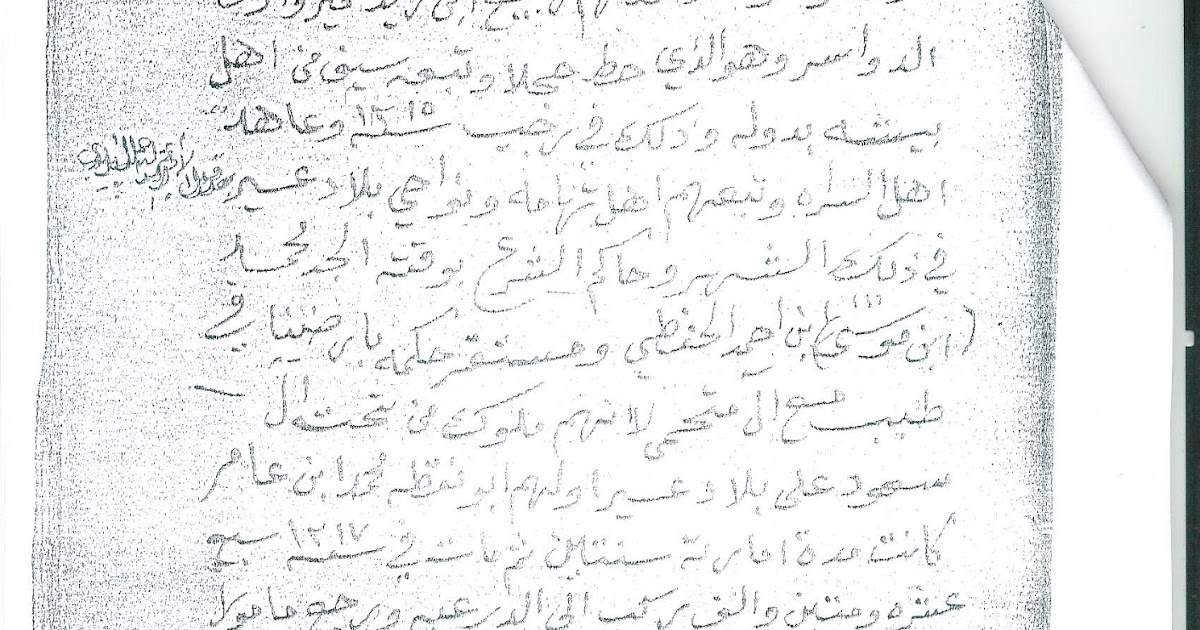 الدواسر وهو الذي حط حجلا وتبعه سيف من اهل
بيشه بدوله وذلك في رجب سنة ١٢١٥ وعاهد
اهل السراه وتبعهم اهل تهامه ونواحي بلاد عسير
في ذلك الشهر وحاكم الشرع بوقته الجد محمد
(ابن موسى) ابن احمد الحفظي ومستقر حكمه بارضينا في
طبب مع ال متحمي لانهم ملوك من تحت ال
سعود على بلاد عسير اولهم ابو نقطه محمد ابن عامر
كانت مدة امارته سنتين ثم مات في سنة ١٢١٧ سبع
عشره ومتين والف ركب الى الدرعيه ورجع